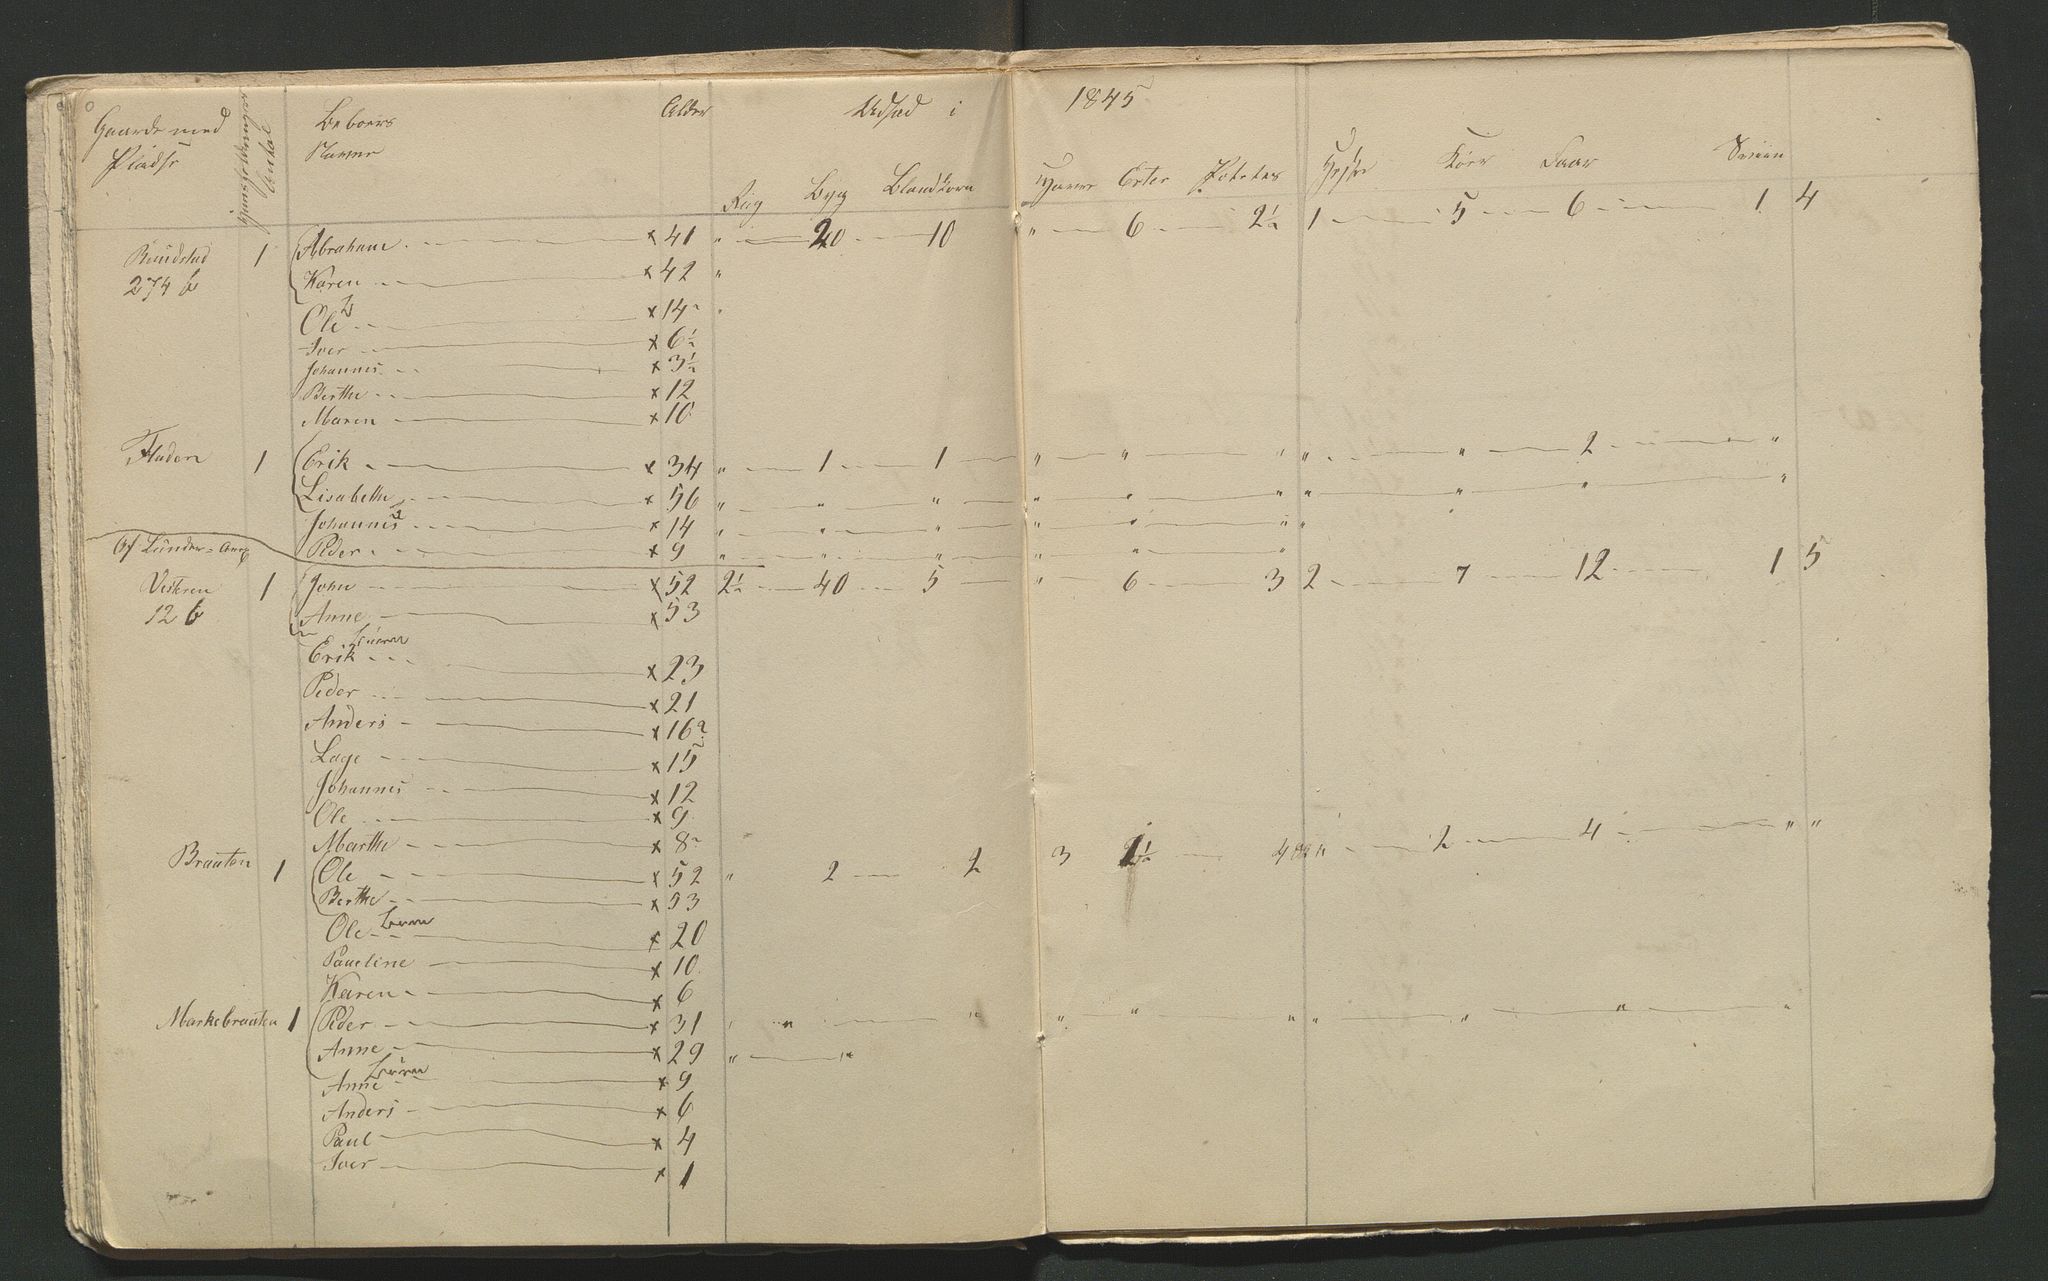 Gaarde med Pladse Huusholdninger Antal Beboers Navne Alder Udsæd i 1845
Rug Byg Blandkorn Havre Erter Potetes Heste Køer Faar Sviin
Ruudstad 1 Abraham × 41 " 20 10 " 6 2½ 1 5 6 1 4
274 b Karen × 42 "
Ole × 14
Iver × 6½
Johannes × 3½
Berthe × 12
Maren × 10
Fladen 1 Erik × 34 " 1 1 " " " " " 2 "
Lisabethe × 56 " " " " " " " " " "
Johannes × 14 " " " " " " "
Peder × 9 " " " " " "
Af Lunder-
Vestern 1 John × 52 2½ 40 5 " 6 3 2 7 12 1 5
12 b Anne × 53
Erik × 23
Peder × 21
Anders × 16
Lage × 15
Johannes × 12
Ole × 9
Marthe × 8
Braaten 1 Ole × 52 " 2 2 3 4 2 4 " "
Berthe × 53
Ole × 20
Pauline × 10
Karen × 6
Markebraaten 1 Peder × 31 " " " " " " " " " "
Anne × 29 " "
Anne × 9
Anders × 6
Paul × 4
Iver × 1